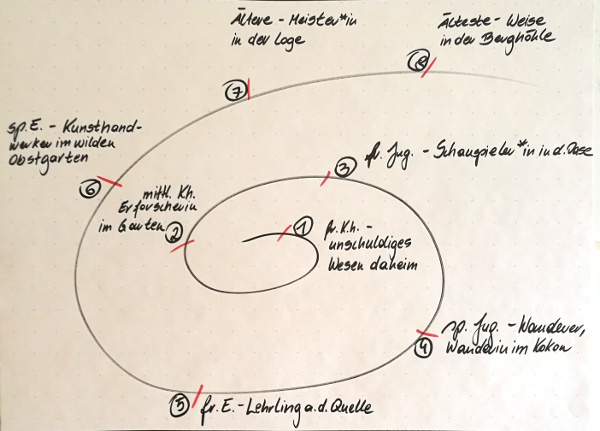 Ältere - Meister*in
in der Loge
Älteste - Weise
in der Berghöhle
8
7
sp. E. - Kunsthand-
werker im wilden
Obstgarten
6
fr. Jug. - Schauspieler*in in d. Oase
3
mittl. Kh.
Erforscherin
im Garten
2
1
fr. Kh. -
unschuldiges
Wesen daheim
sp. Jug. - Wanderer,
Wanderin im Kokon
4
5
fr. E. - Lehrling a. d. Quelle